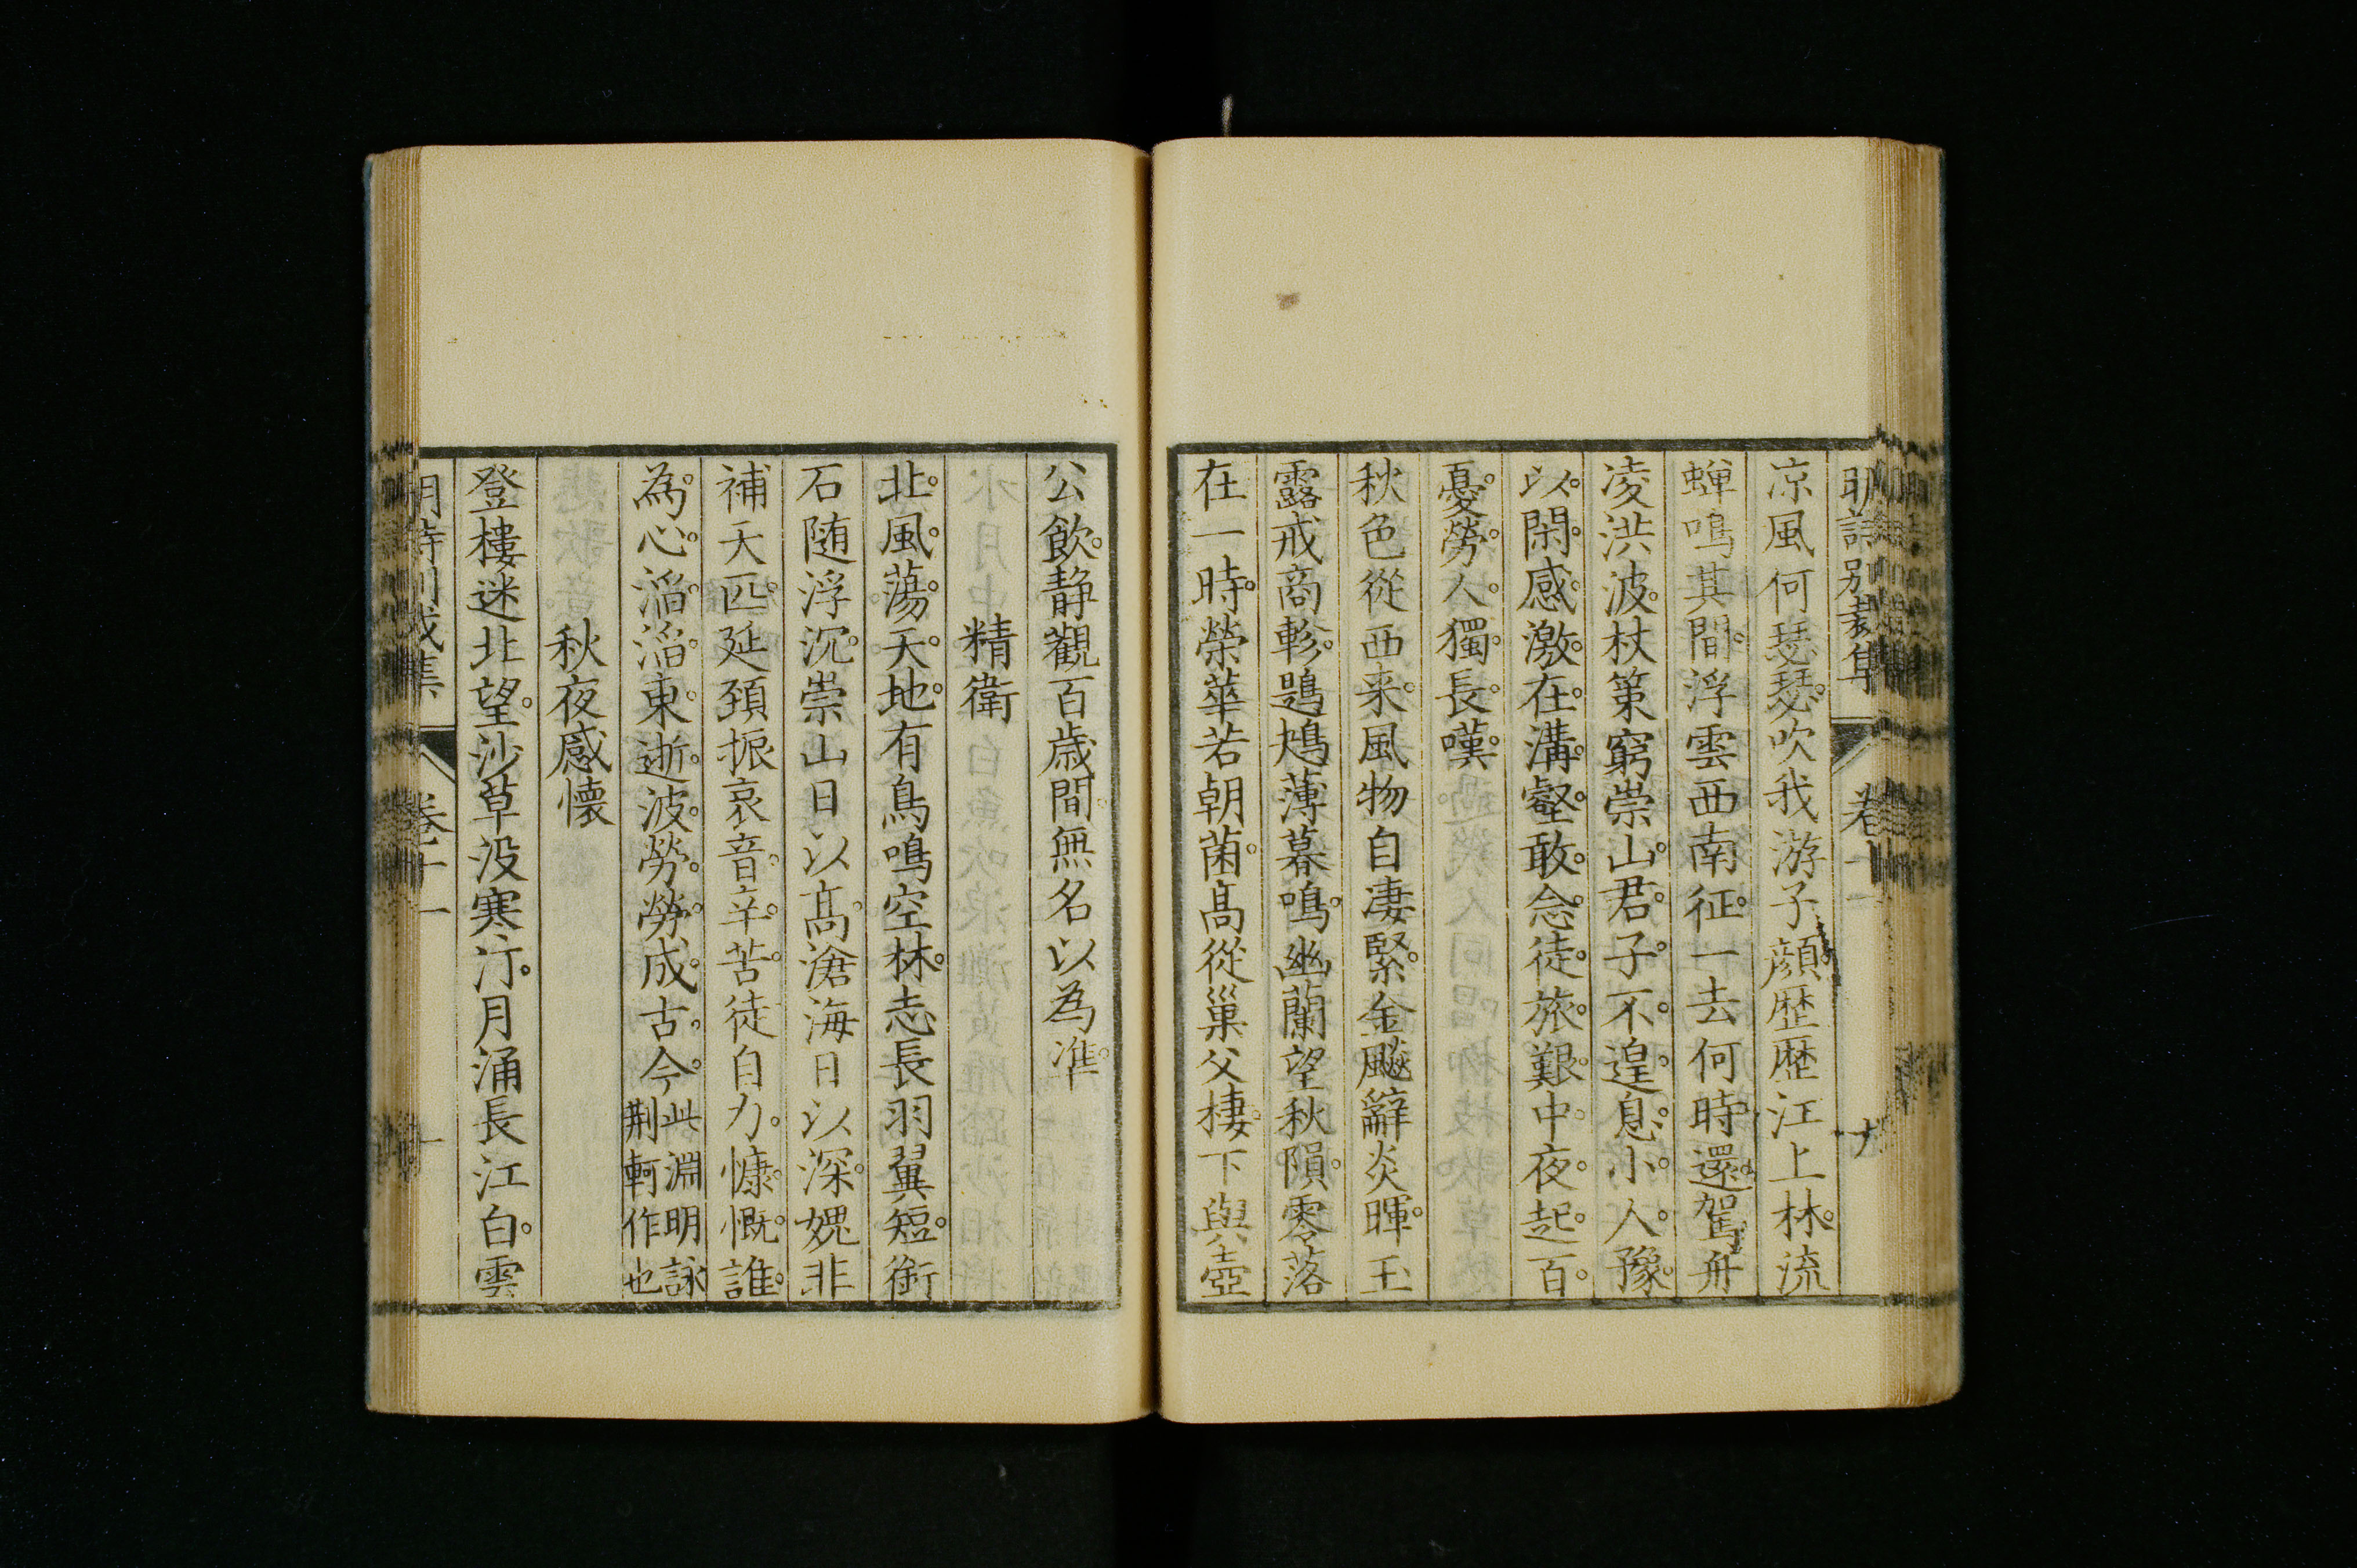 涼風何瑟瑟吹我游子顏歴歴江上林流
蟬鳴其間浮雲西南征一去何時還駕舟
凌洪波杖策窮崇山君子不遑息小人豫
以閑感激在溝壑敢念徒旅艱中夜起百
憂勞人獨長嘆
秋色從西来風物自凄緊金飈辭炎暉玉
露戒商軫鶗鴂薄暮鳴幽蘭望秋隕零落
在一時榮華若朝菌髙從巢父棲下與壺
公飲静觀百歳間無名以為準
精衛
北風蕩天地有鳥鳴空林志長羽翼短銜
石随浮沉崇山日以髙滄海日以深媿非
補天匹延頚振哀音辛苦徒自力慷慨誰
為心滔滔東逝波勞勞成古今此淵明詠
荆軻作也
秋夜感懐
登樓迷北望沙草没寒汀月涌長江白雲
明詩別裁集 卷十一